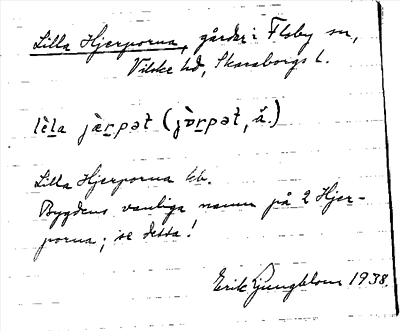 Lilla Hjerporna, gårdar i Floby sn,
Vilske hd, Skaraborgs l.
lèla jæ̀rpət (jòrpət, ä.)
Lilla Hjerporna kb.
Bygdens vanliga namn på 2 Hjer-
porna; se detta!
Erik Ljungblom 1938.